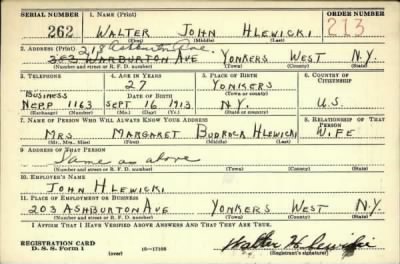 SERIAL NUMBER 1. NAME (Print) ORDER NUMBER
262 WALTER JOHN HLEWICKI 213
(First) (Middle) (Last)
2. ADDRESS (Print) 218 Ashburton Ave.
303 WARBURTON AVE YONKERS WEST N.Y.
(Number and street or R. F. D. number) (Town) (County) (State)
3. TELEPHONE 4. AGE IN YEARS 5. PLACE OF BIRTH 6. COUNTRY OF CITIZENSHIP
27 YONKERS
BUSINESS DATE OF BIRTH (Town or county)
NEPP 1163 SEPT 16 1913 N.Y. U.S.
(Exchange) (Number) (Mo.) (Day) (Yr.) (State or country)
7. NAME OF PERSON WHO WILL ALWAYS KNOW YOUR ADDRESS 8. RELATIONSHIP OF THAT PERSON
MRS MARGARET HLEWICKI WIFE
(Mr., Mrs., Miss) (First) (Middle) (Last)
9. ADDRESS OF THAT PERSON
Same as above
(Number and street or R. F. D. number) (Town) (County) (State)
10. EMPLOYER'S NAME
JOHN HLEWICKI
11. PLACE OF EMPLOYMENT OR BUSINESS
203 ASHBURTON AVE YONKERS WEST N.Y.
(Number and street or R. F. D. number) (Town) (County) (State)
I AFFIRM THAT I HAVE VERIFIED ABOVE ANSWERS AND THAT THEY ARE TRUE.
REGISTRATION CARD
D. S. S. Form 1 (over) Walter Hlewicki
(Registrant's signature)